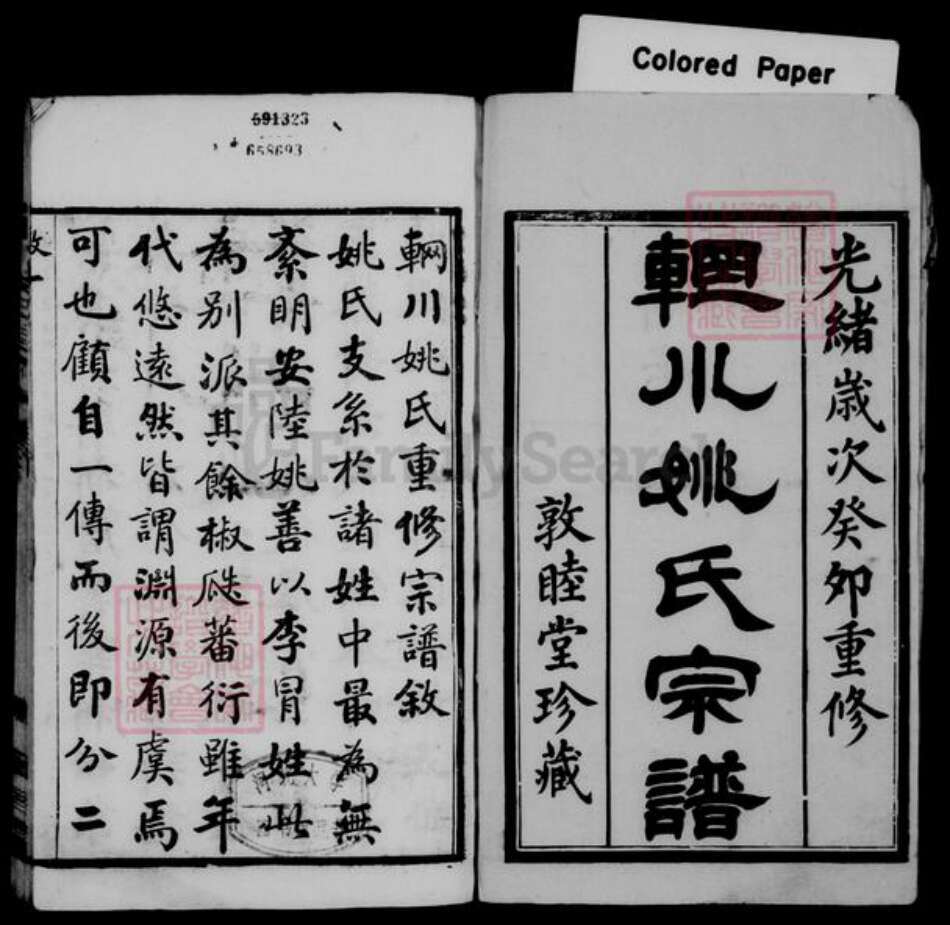 Colored Paper
光緒歲次癸卯重修
輞川姚氏宗譜
敦睦堂珍藏
691323
658693
輞川姚氏重修宗譜敘
姚氏支系於諸姓中最為無
紊明安陸姚善以李冒姓此
為別派其餘椒瓞蕃衍雖年
代悠遠然皆謂淵源有虞焉
可也顧自一傳而後即分二
FamilySearch